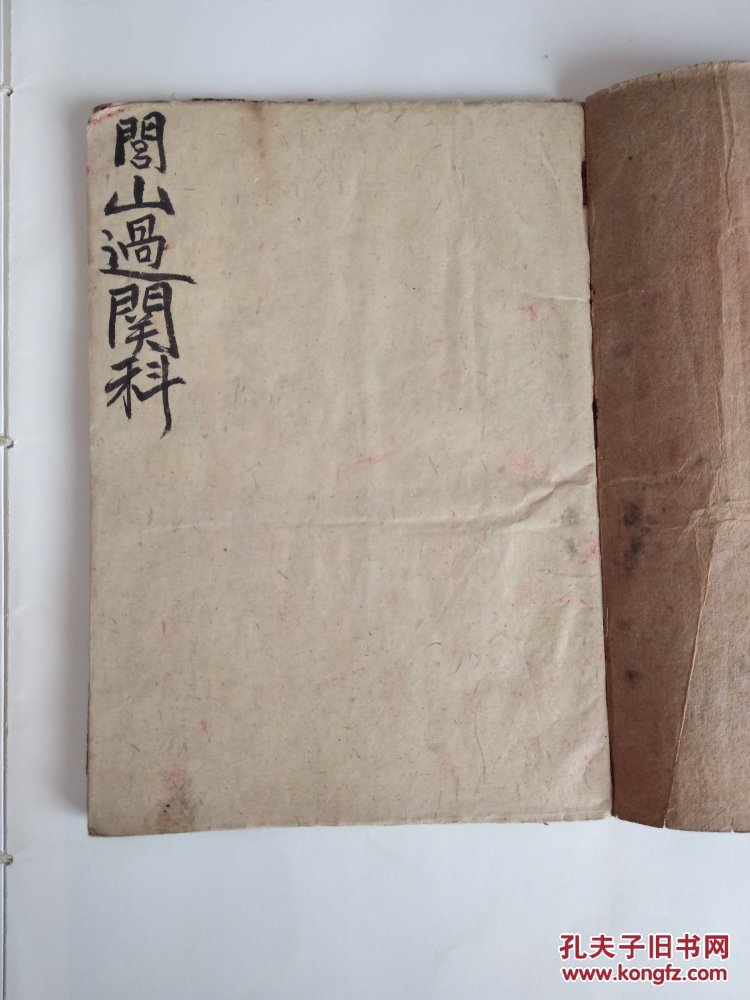 閭山過関科
孔夫子旧书网
www.kongfz.com